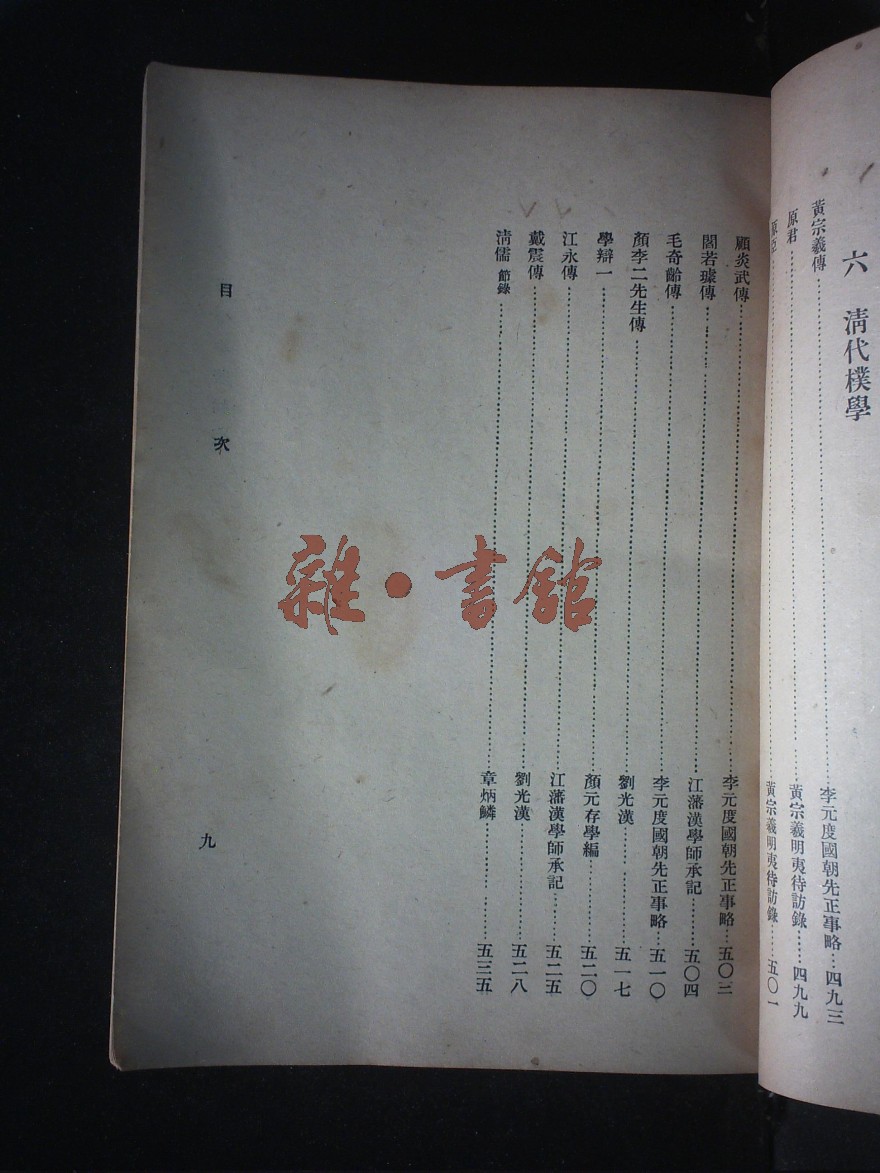 六 清代樸學
黃宗羲傳……李元度國朝先正事略…四九三
原君……黃宗羲明夷待訪錄……四九九
原臣……黃宗羲明夷待訪錄……五〇一
顧炎武傳……李元度國朝先正事略…五〇三
閻若璩傳……江藩漢學師承記……五〇四
毛奇齡傳……李元度國朝先正事略…五一〇
顏李二先生傳……劉光漢……五一七
學辯一……顏元存學編……五二〇
江永傳……江藩漢學師承記……五二五
戴震傳……劉光漢……五二八
清儒 節錄……章炳鱗……五三五
目 次
九
雜·書館